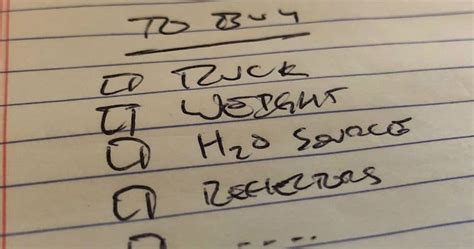 TO BUY
☐ RUCK
☐ WEIGHT
☐ H2O SOURCE
☐ REFLECTORS
☐ ....